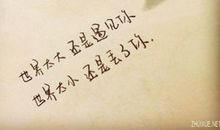 世界太大 还是遇见你
世界太小 还是丢了你.
ZHUIXUE.NET